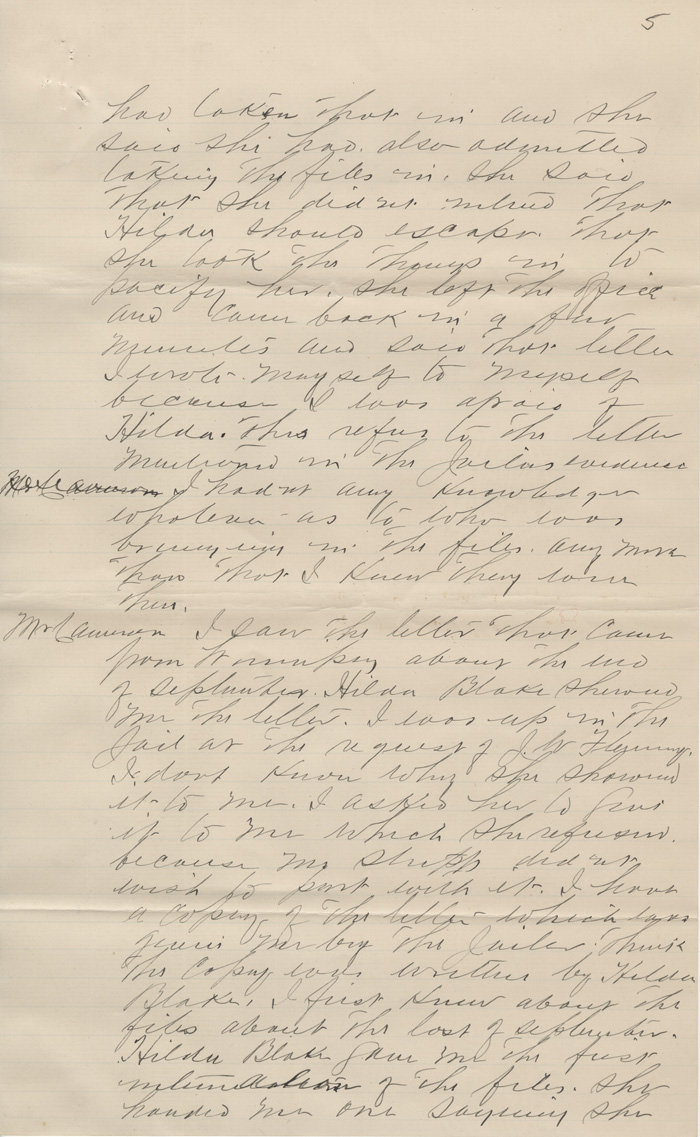 5
had taken that in and she
said she had. also admitted
taking the files in. she said
that she did not intend that
Hilda should escape. that
she took the things in to
pacify her. she left the office
and came back in a few
minutes and said that letter
I wrote myself to myself
because I was afraid of
Hilda. this refers to the letter
mentioned in the Jailers evidence
I hadnt any knowledge
whatever as to who was
bringing in the files. any more
than that I knew they were
there.
Mr Cameron I saw the letter that came
from Winnipeg about the end
of september. Hilda Blake showed
me the letter. I was up in the
Jail at the request of J. W Fleming.
I dont know why she showed
it to me. I asked her to give
it to me which she refused.
because Mrs Stripp did not
wish to part with it. I have
a copy of the letter which was
given me by the Jailer. think
the copy was written by Hilda
Blake. I first knew about the
files about the last of september.
Hilda Blake gave me the first
of the files. she
handed me one saying she